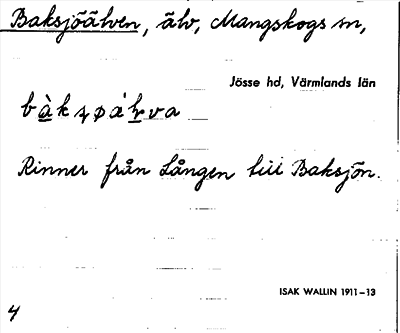 Baksjöälven, älv, Mangskogs sn,
Jösse hd, Värmlands län
Rinner från Lången till Baksjön.
ISAK WALLIN 1911–13
4